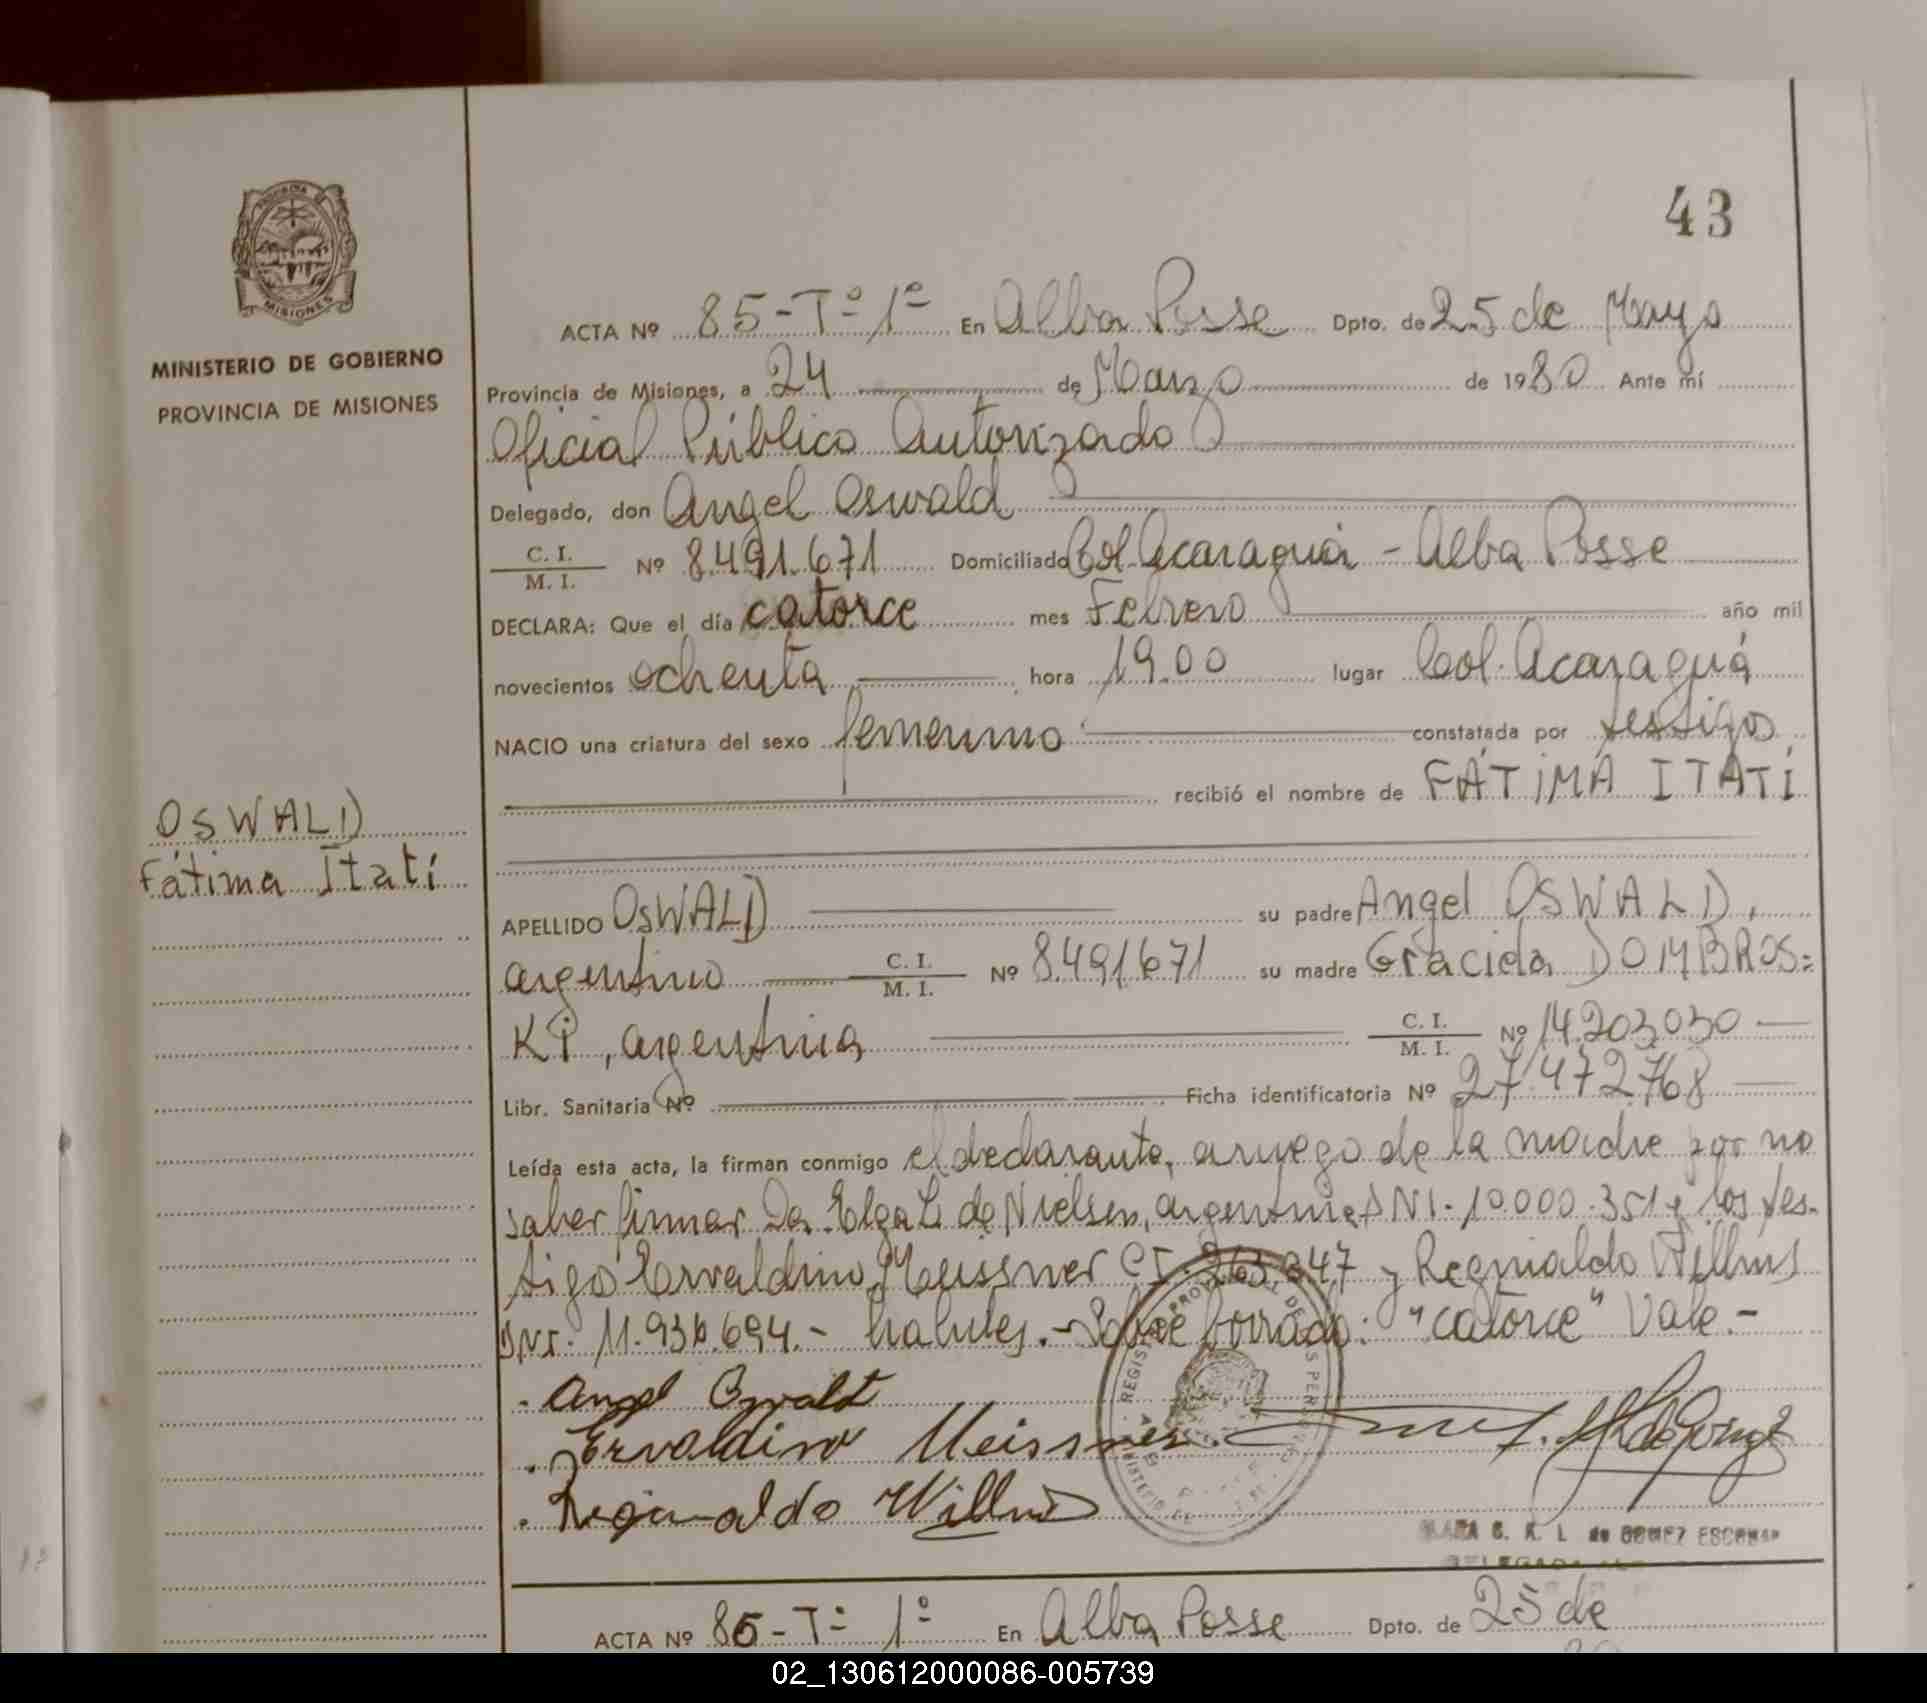 43
PROVINCIA
MISIONES
MINISTERIO DE GOBIERNO
PROVINCIA DE MISIONES
ACTA Nº 85-Tº 1º En Alba Posse Dpto. de 25 de Mayo
Provincia de Misiones, a 24 de Marzo de 1980 Ante mí
Oficial Público Autorizado
Delegado, don Angel Oswald
C. I.
M. I. Nº 8.491.671 Domiciliado Col. Acaraguá - Alba Posse
DECLARA: Que el día catorce mes Febrero año mil
novecientos ochenta hora 19.00 lugar Col. Acaraguá
NACIO una criatura del sexo femenino constatada por testigos
recibió el nombre de FÁTIMA ITATÍ
OSWALD
Fátima Itatí
APELLIDO OSWALD su padre Angel OSWALD,
argentino C. I. M. I. Nº 8.491671 su madre Graciela DOMBROS=
KI, argentina C. I. M. I. Nº 14.203.030
Libr. Sanitaria Nº Ficha identificatoria Nº 27.472.768
Leída esta acta, la firman conmigo el declarante, a ruego de la madre por no
saber firmar Da. Elga L. de Nielsen, argentina DNI. 10.000.351 y los tes-
tigo Ervaldino Meissner CI. 263.647 y Reginaldo Willms
DNI. 11.936.694.- habiles.- Sobre borrado: "catorce" Vale.-
Angel Osvalt
Ervaldino Meissner
Reginaldo Willms
de GOMEZ ESCOBAR
ACTA Nº 86-Tº 1º En Alba Posse Dpto. de 25 de
02_130612000086-005739